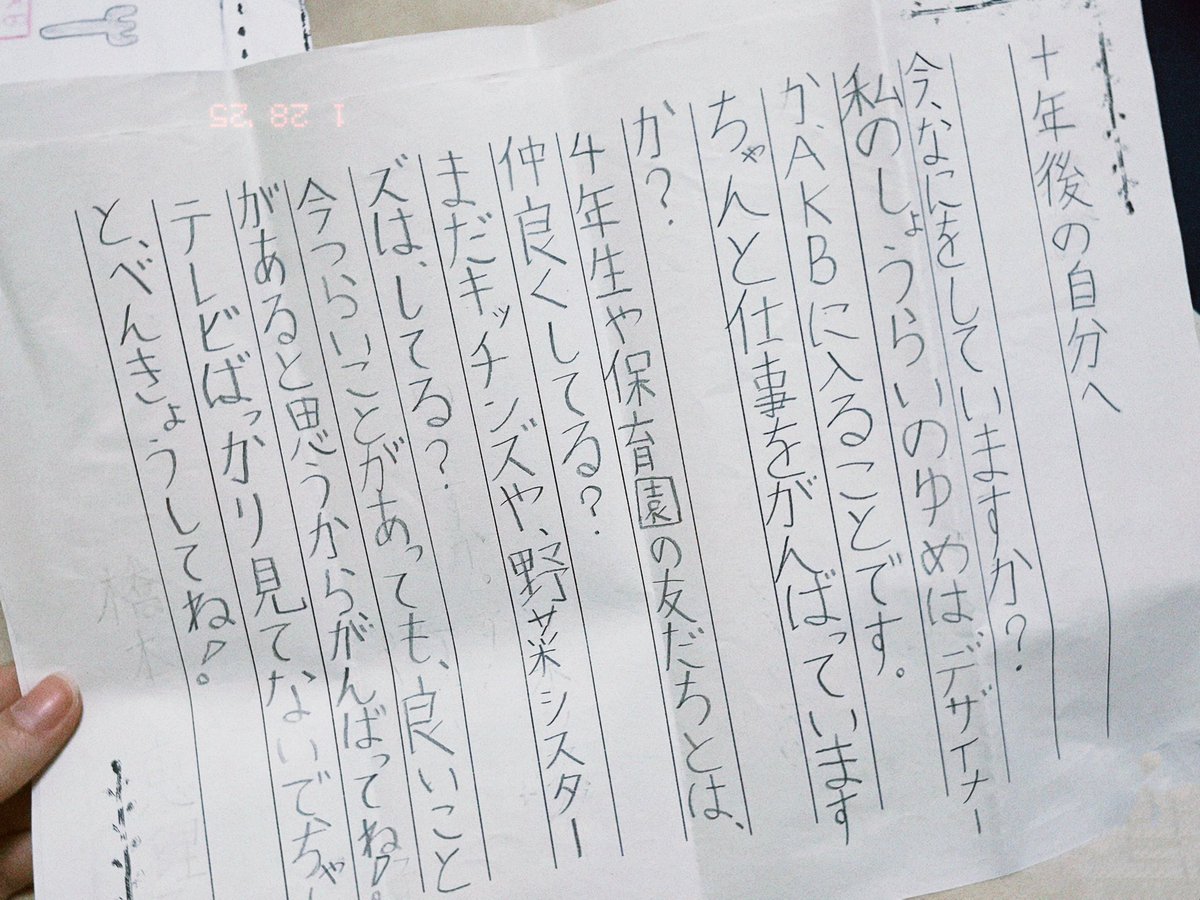 十年後の自分へ
今、なにをしていますか?
私のしょうらいのゆめは、デザイナー
か、AKBに入ることです。
ちゃんと仕事をがんばっています
か?
4年生や保育園の友だちとは、
仲良くしてる?
まだキッチンズや、野菜シスター
ズは、してる?
今つらいことがあっても、良いこと
があると思うからがんばってね!
テレビばっかり見てないで、ちゃん
と、べんきょうしてね!。
1 28 '25